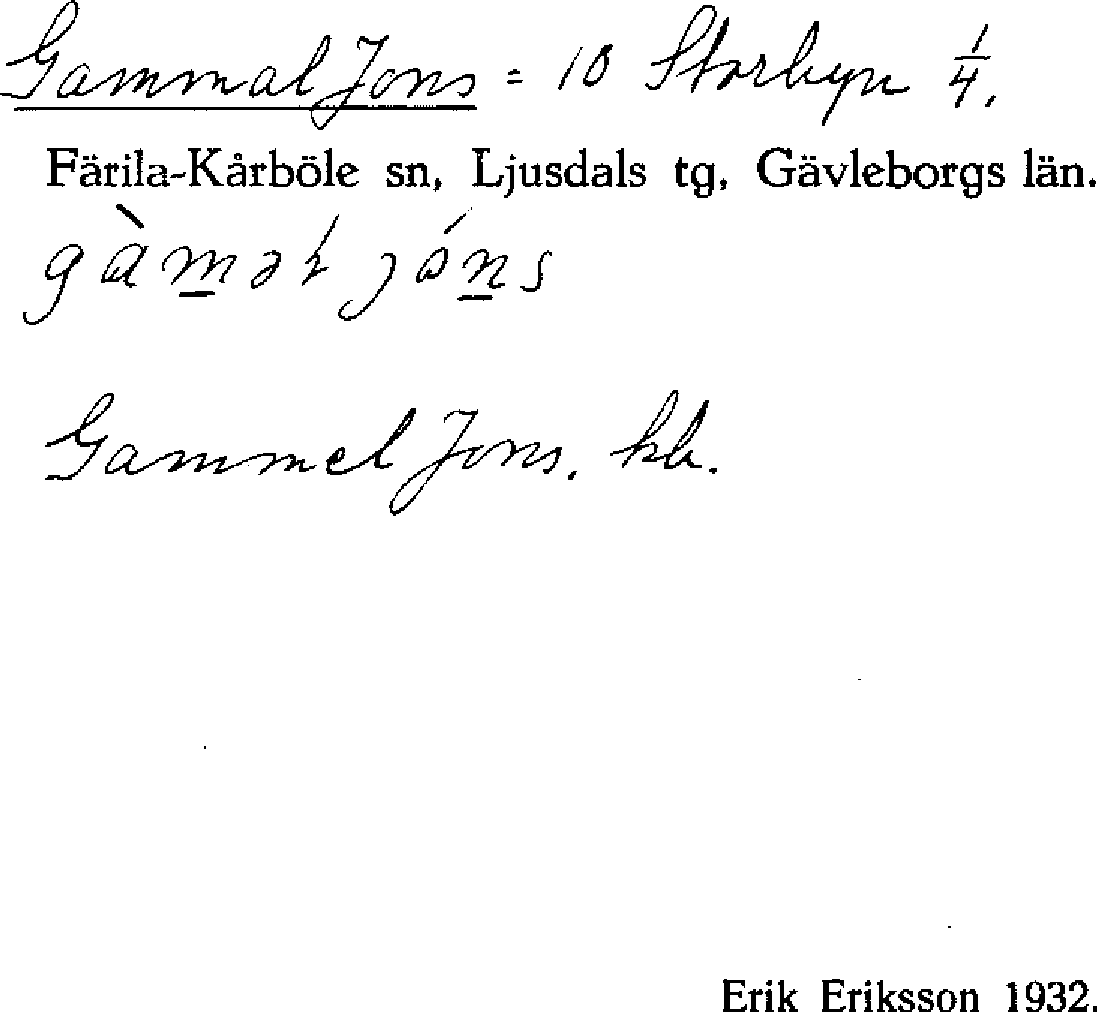 Gammal Jons = 10 Storbyn 1/4.
Färila-Kårböle sn, Ljusdals tg, Gävleborgs län.
gàməɫ jóns
Gammel Jons. kb.
Erik Eriksson 1932.